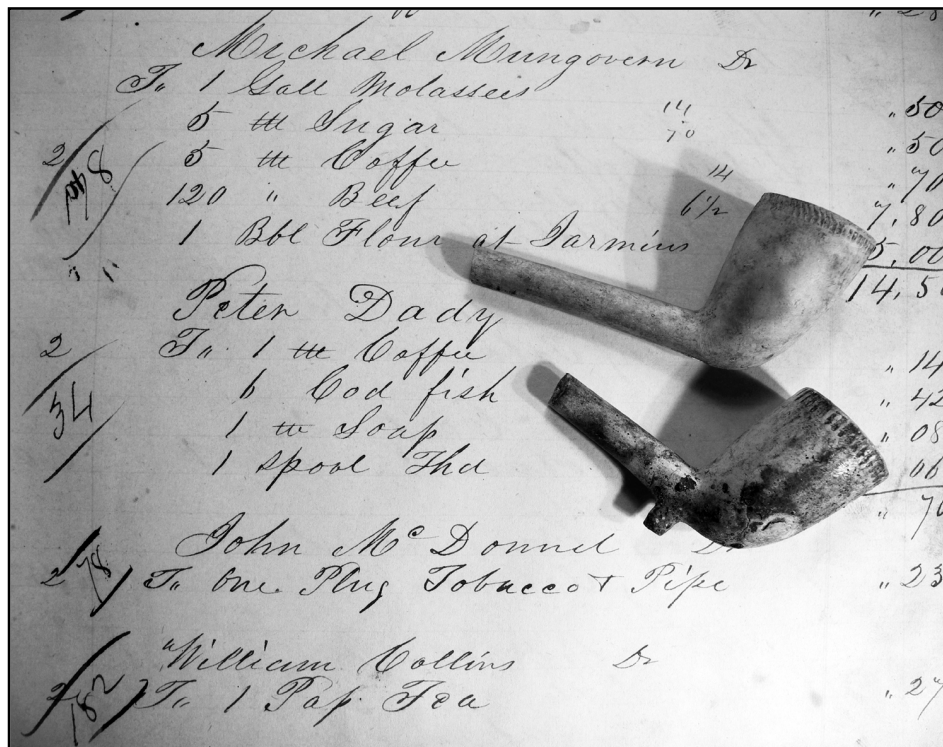 Michael Mungovern Dr
To 1 Gall Molasses ,, 50
5 lb Sugar 10 ,, 50
5 lb Coffee 14 ,, 70
120 ,, Beef 6 1/2 7,80
1 Bbl Flour at 5,00
14,50
Peter Dady
2 To 1 lb Coffee ,, 14
34 6 Cod fish ,, 42
1 lb Soap ,, 08
1 Spool Thd 06
,, 70
John McDonnel Dr
2 78 To One Plug Tobacco + Pipe ,, 23
William Collins Dr
2 182 To 1 Pap Tea ,, 27